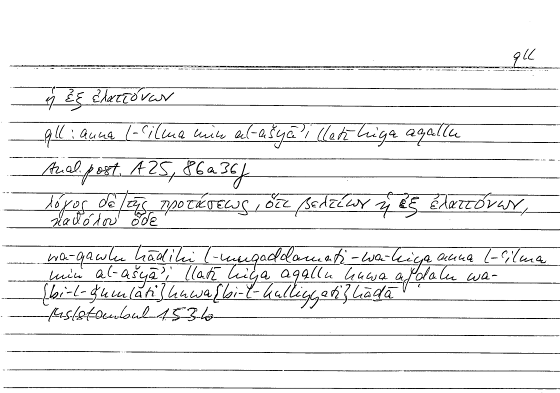 qll
ἡ ἐξ ἐλαττόνων
qll : anna l-ʿilma min al-ašyāʾi llatī hiya aqallu
Anal. post. A 25, 86a36f
λόγος δὲ τῆς προτάσεως, ὅτι βελτίων ἡ ἐξ ἐλαττόνων,
καθόλου ὅδε
wa-qawlu hāḏihi l-muqaddamati -wa-hiya anna l-ʿilma
min al-ašyāʾi llatī hiya aqallu huwa afḍalu wa-
{bi-l-ǧumlati} huwa {bi-l-kulliyyati} hāḏā
Istanbul 153b